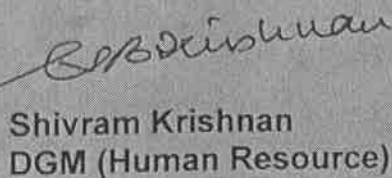 Shivram Krishnan
DGM (Human Resource)